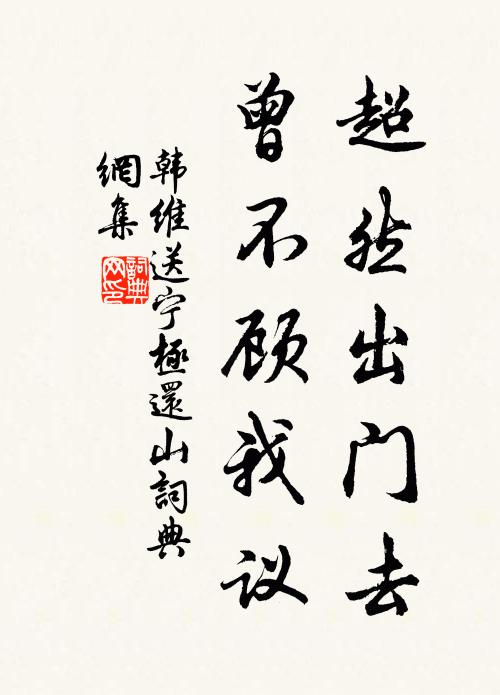 超然出门去
曾不顾我议
韩维送宁極還山詞典
網集
詞典
网印